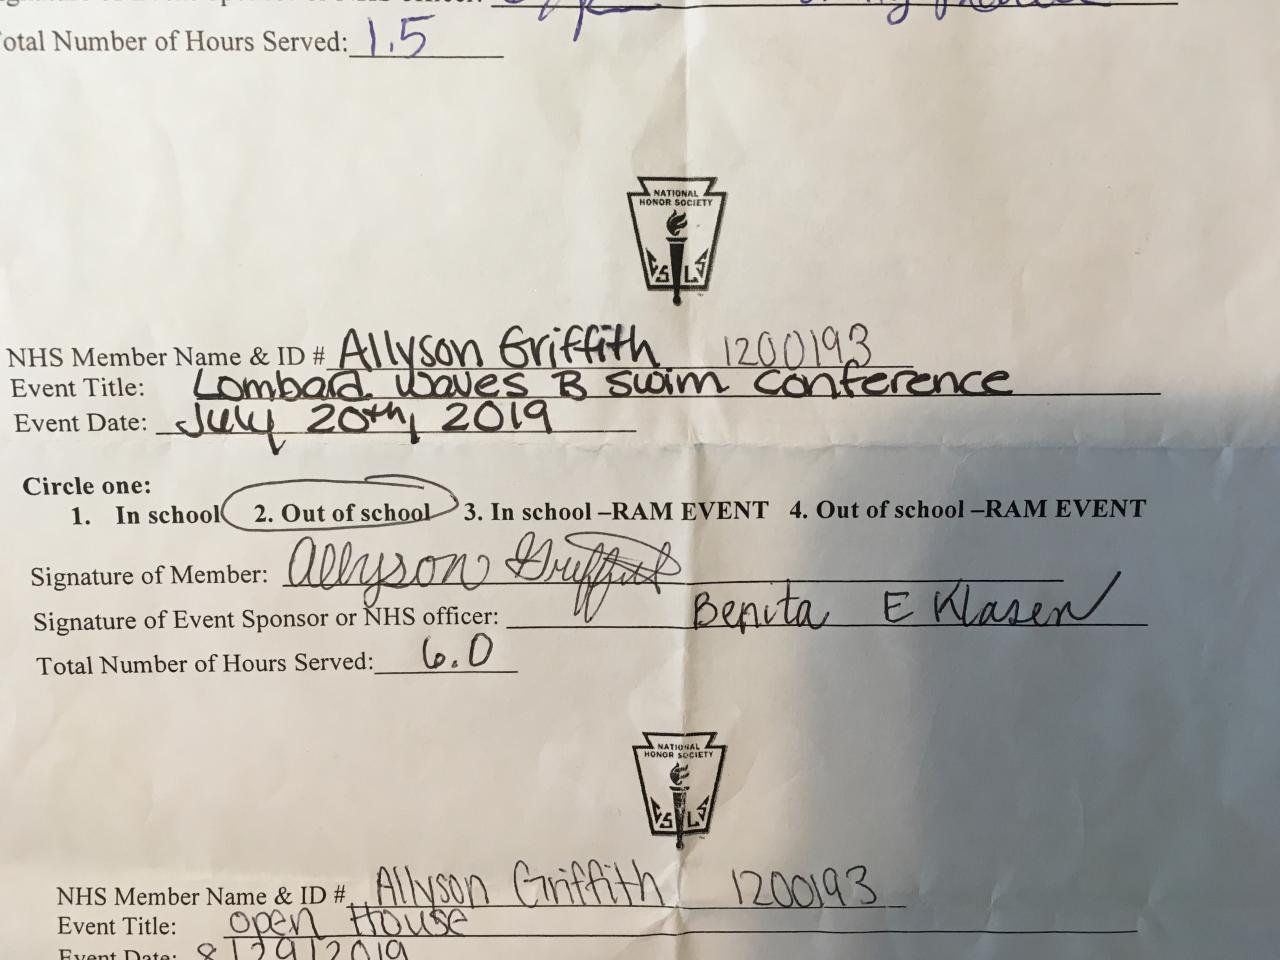 Total Number of Hours Served: 1.5
NATIONAL
HONOR SOCIETY
C S L S
NHS Member Name & ID # Allyson Griffith 1200193
Event Title: Lombard waves B swim conference
Event Date: July 20th, 2019
Circle one:
1. In school 2. Out of school 3. In school –RAM EVENT 4. Out of school –RAM EVENT
Signature of Member: Allyson Griffith
Signature of Event Sponsor or NHS officer: Benita E Klasen
Total Number of Hours Served: 6.0
NATIONAL
HONOR SOCIETY
C S L S
NHS Member Name & ID # Allyson Griffith 1200193
Event Title: open House
Event Date: 8/29/2019